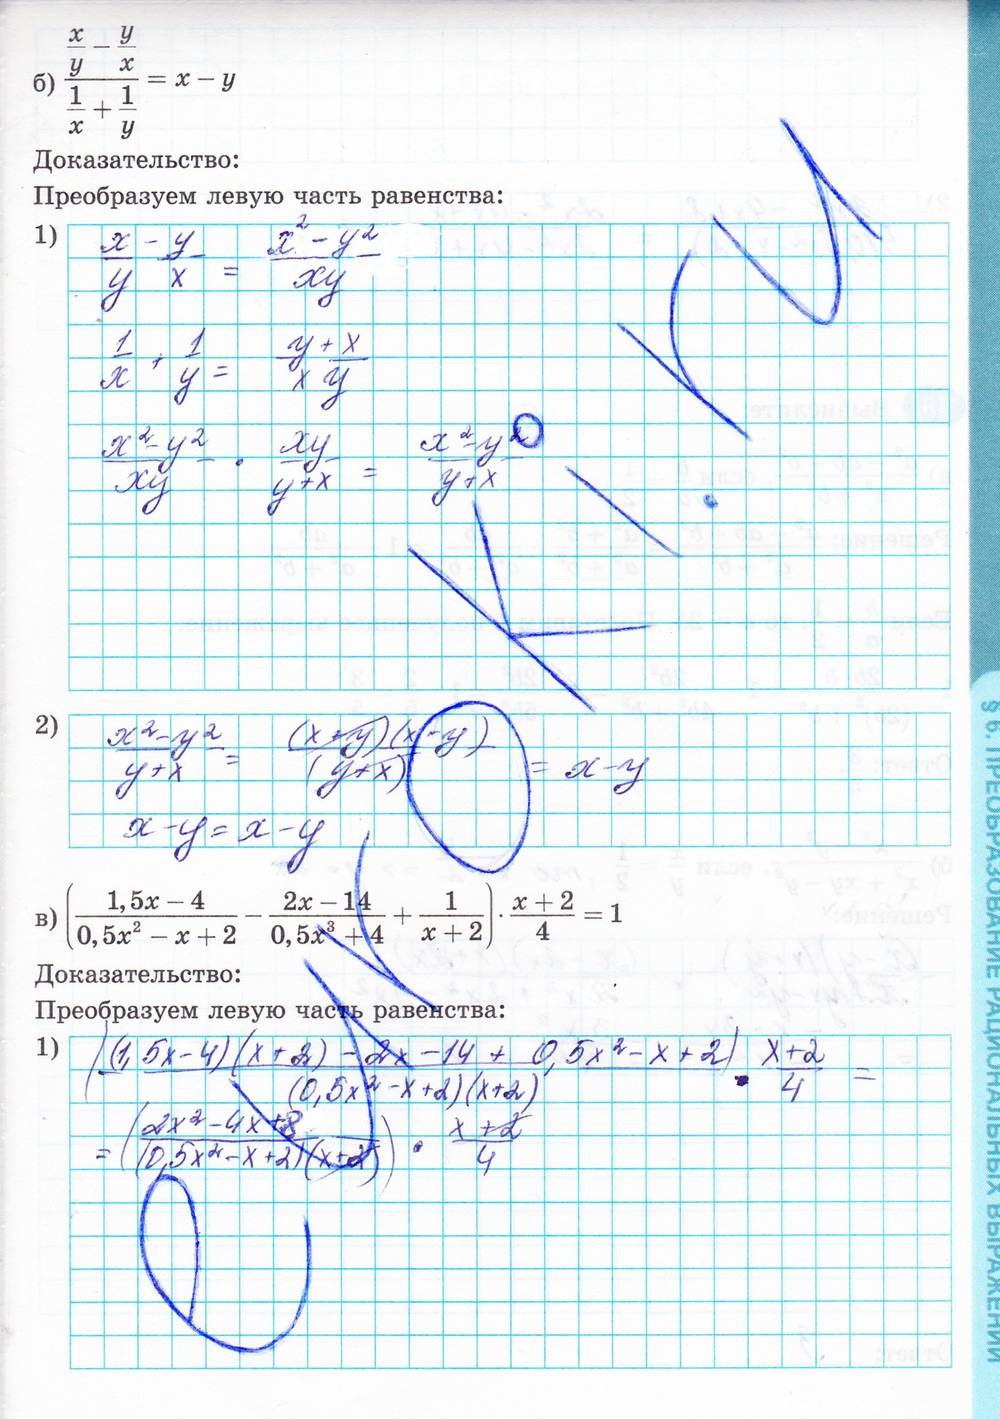 б) (x/y − y/x)/(1/x + 1/y) = x − y
Доказательство:
Преобразуем левую часть равенства:
1) x/y − y/x = (x² − y²)/(xy)
1/x + 1/y = (y + x)/(xy)
(x² − y²)/(xy) · (xy)/(y + x) = (x² − y²)/(y + x)
2) (x² − y²)/(y + x) = ((x + y)(x − y))/((y + x)) = x − y
x − y = x − y
в) ((1,5x − 4)/(0,5x² − x + 2) − (2x − 14)/(0,5x³ + 4) + 1/(x + 2)) · (x + 2)/4 = 1
Доказательство:
Преобразуем левую часть равенства:
1) (((1,5x − 4)(x + 2) − 2x − 14 + 0,5x² − x + 2)/((0,5x² − x + 2)(x + 2))) · (x + 2)/4 =
= ((2x² − 4x + 8)/((0,5x² − x + 2)(x + 2))) · (x + 2)/4
§ 6. ПРЕОБРАЗОВАНИЕ РАЦИОНАЛЬНЫХ ВЫРАЖЕНИЙ